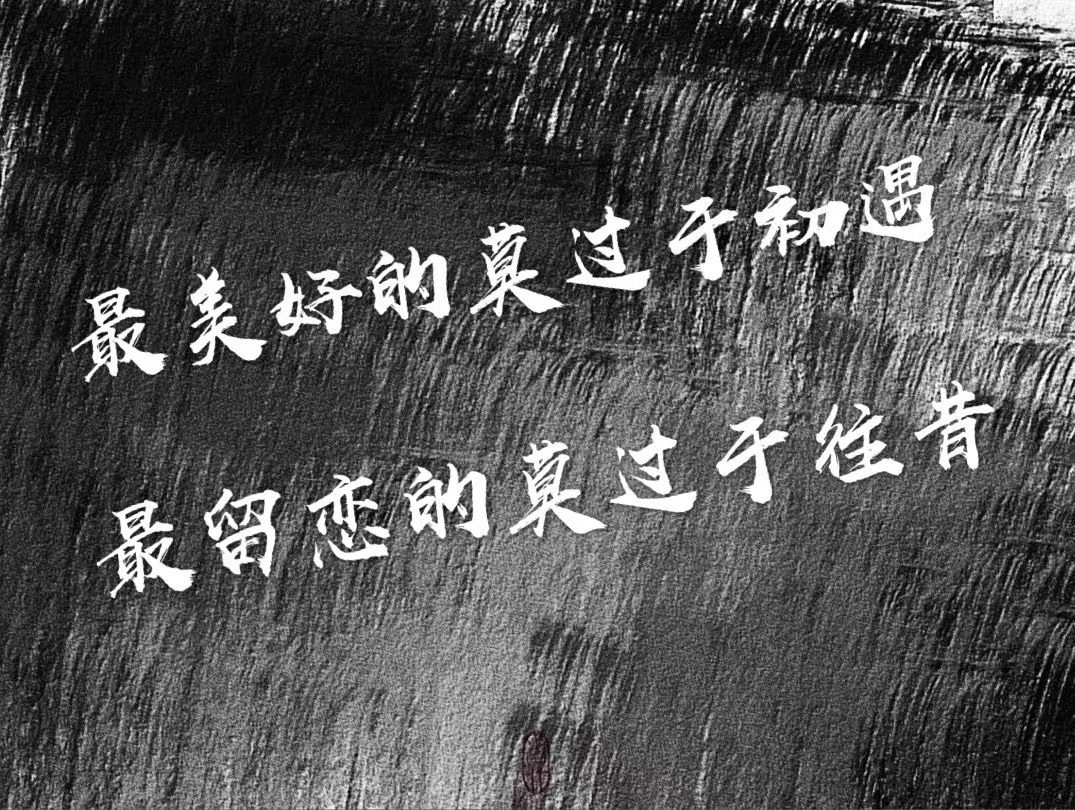 最美好的莫过于初遇
最留恋的莫过于往昔